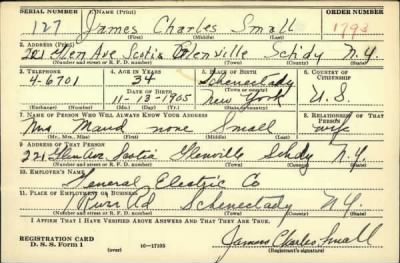 SERIAL NUMBER 1. NAME (Print) ORDER NUMBER
127 James Charles Small 1793
(First) (Middle) (Last)
2. ADDRESS (Print)
221 Glen Ave Scotia Glenville Schdy N.Y.
(Number and street or R. F. D. number) (Town) (County) (State)
3. TELEPHONE 4. AGE IN YEARS 5. PLACE OF BIRTH 6. COUNTRY OF CITIZENSHIP
4-6701 34 Schenectady
DATE OF BIRTH (Town or county)
11-13-1905 New York U.S.
(Exchange) (Number) (Mo.) (Day) (Yr.) (State or country)
7. NAME OF PERSON WHO WILL ALWAYS KNOW YOUR ADDRESS 8. RELATIONSHIP OF THAT PERSON
Mrs Maud none Small wife
(Mr., Mrs., Miss) (First) (Middle) (Last)
9. ADDRESS OF THAT PERSON
221 Glen Ave Scotia Glenville Schdy N.Y.
(Number and street or R. F. D. number) (Town) (County) (State)
10. EMPLOYER'S NAME
General Electric Co
11. PLACE OF EMPLOYMENT OR BUSINESS
River Rd Schenectady N.Y.
(Number and street or R. F. D. number) (Town) (County) (State)
I AFFIRM THAT I HAVE VERIFIED ABOVE ANSWERS AND THAT THEY ARE TRUE.
REGISTRATION CARD
D. S. S. FORM 1 (over) 16-17105 James Charles Small
(Registrant's signature)